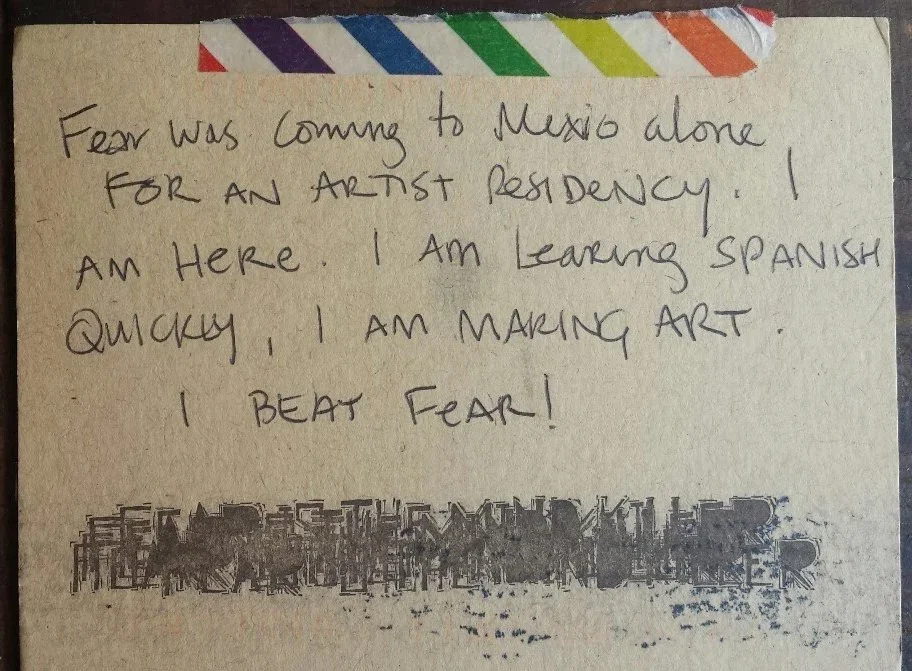 Fear was coming to Mexio alone
FOR AN ARTIST RESIDENCY. I
AM HERE. I AM Learing SPANISH
QUICKLY, I AM MAKING ART.
I BEAT FeAR!
FEAR IS THE MIND KILLER